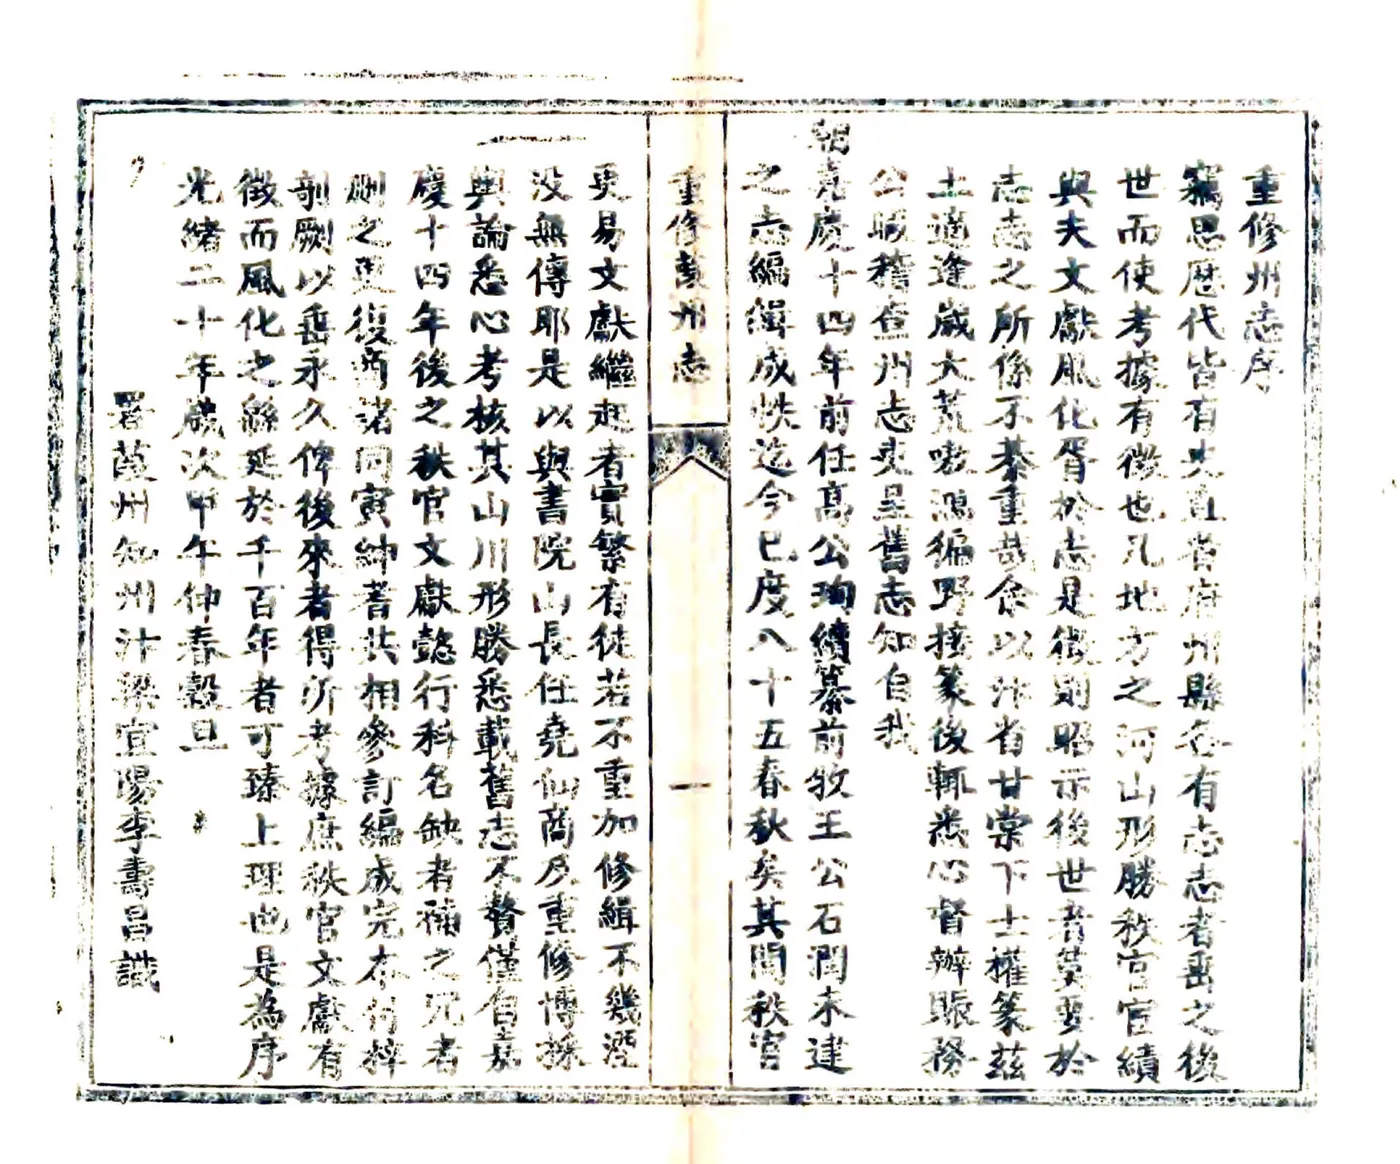 重修州志序
竊思歷代皆有史直省府州縣各有志志者垂之後
世而使考據有徵也凡地方之河山形勝秩官官績
與夫文獻風化胥於志是徵則昭示後世者莫要於
志志之所係不綦重哉余以汴省甘棠下士權篆茲
土適逢歲大荒嗷鴻徧野接篆後輒悉心督辦賑務
公暇稽查州志吏呈舊志知自我
朝嘉慶十四年前任高公珣續纂前牧王公石潤未建
之志編緝成帙迄今已度八十五春秋矣其間秩官
重修葭州志
一
更易文獻繼起者實繁有徒若不重加修緝不幾湮
沒無傳耶是以與書院山長任堯仙商及重修博採
輿論悉心考核其山川形勝悉載舊志不贅僅自嘉
慶十四年後之秩官文獻懿行科名缺者補之冗者
刪之更復商諸同寅紳耆共相參訂編成完本付梓
剞劂以垂永久俾後來者得所考據庶秩官文獻有
徵而風化之綿延於千百年者可臻上理也是為序
光緒二十年歲次甲午仲春穀旦
署葭州知州汴梁宜陽李壽昌識